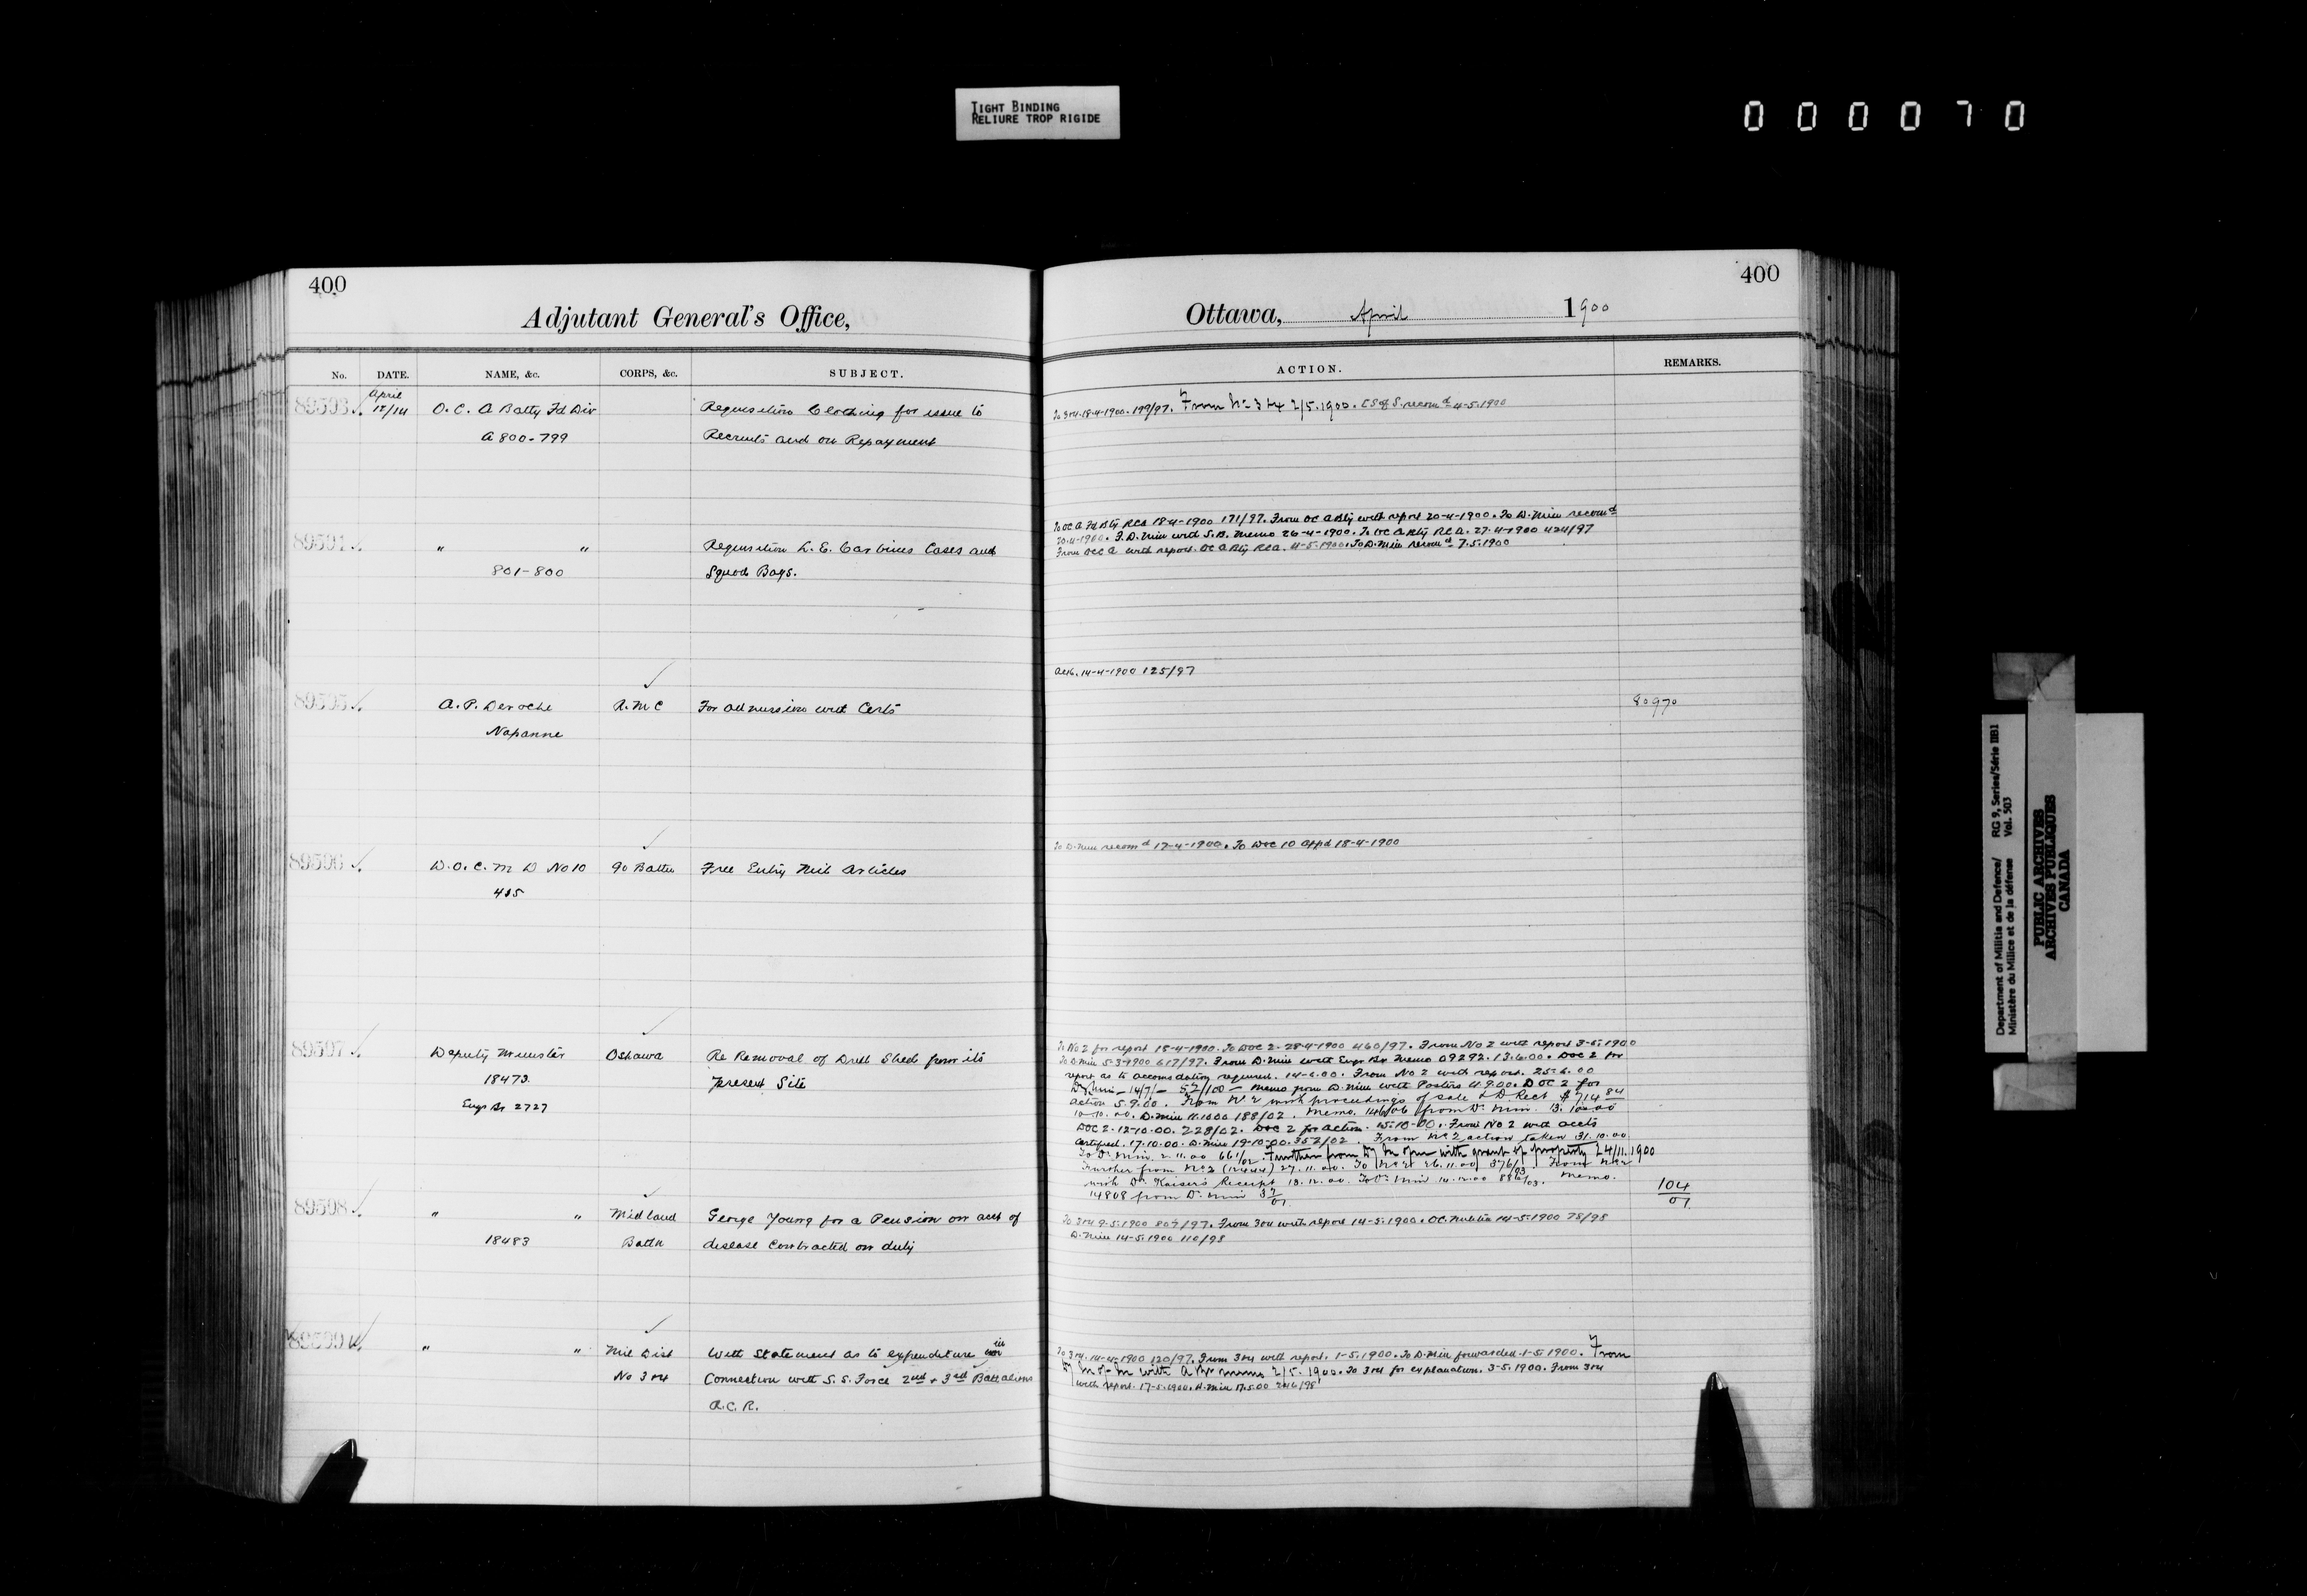 TIGHT BINDING
RELIURE TROP RIGIDE
000070
400
Adjutant General's Office,
No. DATE. NAME, &c. CORPS, &c. SUBJECT.
April
89593 15/14 O. C. A Batty Fd Div Requisition Clothing for issue to
A 800-799 Recruits and on Repayment
89594 " " Requisition L. E. Carbines Cases and
801-800 Squad Bags.
89595 A. P. Deroche R.M.C For admission with Certs
Napanne
89596 D.O.C. M D No 10 90 Battn Free Entry Mil Articles
89597 Deputy Minister Oshawa Re Removal of Drill Shed from its
18473. present Site
Engr Br 2727
89598 " " Midland George Young for a Pension on acct of
18483 Battn disease Contracted on duty
89599 " " Mil Dist With Statement as to expenditure in
No 3 & 4 Connection with S. S. Force 2nd + 3rd Battalions
R.C.R.
400
Ottawa, April 1900
ACTION. REMARKS.
To 3 & 4. 18-4-1900. 199/97. From No 3 & 4 2/5.1900. CS of S. recomd 4-5-1900
To OC A Fd Bty RCA 18-4-1900 171/97. From OC A Bty with report 20-4-1900. To D. Min recomd
20-4-1900. F. D. Min with S.B. Memo 26-4-1900. To OC A Bty RCA. 27-4-1900 424/97
From OC A with report. OC A Bty RCA. 4-5-1900. To D. Min recomd 7.5.1900
Ack. 14-4-1900 125/97
80970
To D. Min recomd 17-4-1900. To DOC 10 appd 18-4-1900
To No 2 for report 18-4-1900. To DOC 2. 28-4-1900 460/97. From No 2 with report 3-5-1900
To D. Min 5-3-1900 617/97. From D. Min with Engr Br. Memo 09292. 13.6.00. DOC 2 for
report as to accomodation required. 14-6.00. From No 2 with report. 25-6.00
Memo from D. Min with Posters 4.9.00. DOC 2 for
action 5.9.00. From No 2 with proceedings of sale & D. Rect $714 84
10-10.00. D. Min 11.10.00 188/02. Memo. from D. Min. 13.10.00
DOC 2. 12-10.00. 228/02. DOC 2 for action. 15-10-00. From No 2 with accts
Certified. 17.10.00. D. Min 19-10-00. 352/02. From No 2 action taken 31.10.00
To D. Min. 2.11.00 661/02. Further from with grant of property 24/11.1900
Further from No 2 27.11.00. To No 2 26.11.00 376/93. From No 2
with Dr. Kaiser's Receipt 13.12.00. To D. Min 14.12.00 Memo.
14808 from D. Min
104/01
To 3 & 4 9-5-1900 807/97. From 3 & 4 with report 14-5-1900. OC. Militia 14-5-1900 78/98
D. Min 14-5-1900 110/98
To 3 & 4. 14-4-1900 120/97. From 3 & 4 with report. 1-5-1900. To D. Min forwarded. 1-5-1900. From
with 2/5.1900. To 3 & 4 for explanation. 3-5.1900. From 3 & 4
with report. 17-5-1900. D. Min 17.5.00
Department of Militia and Defence/ RG 9, Series/Série IIB1
Ministère du Milice et de la défense Vol. 503
PUBLIC ARCHIVES
ARCHIVES PUBLIQUES
CANADA